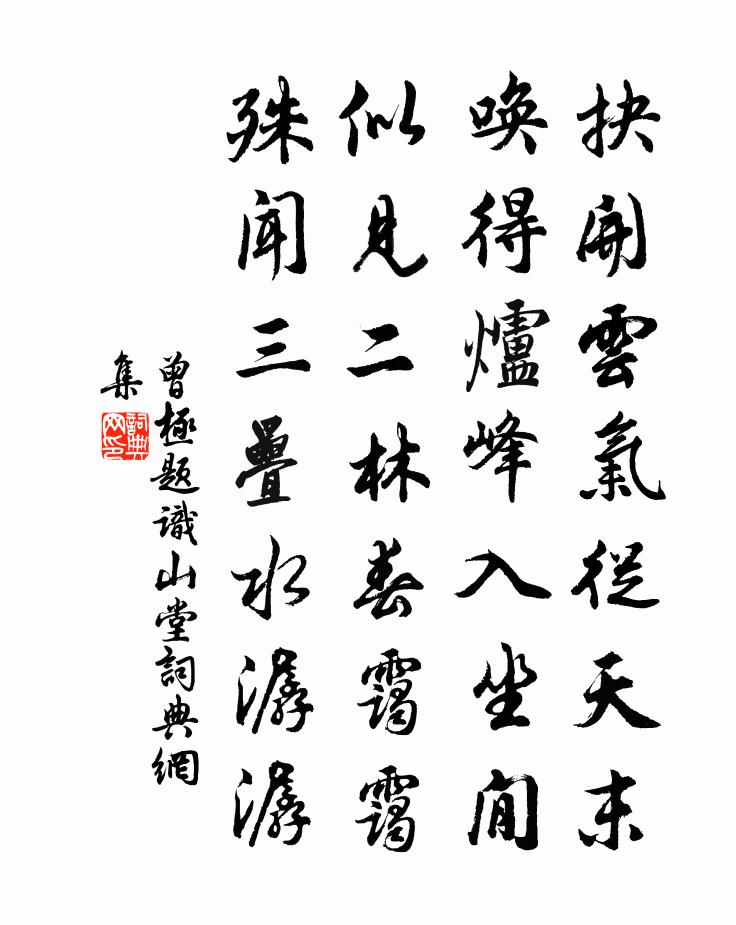 抉開雲氣從天末
喚得爐峰入坐間
似見二林春靄靄
殊聞三疊水潺潺
曾極题識山堂詞典網
集
詞典
网印